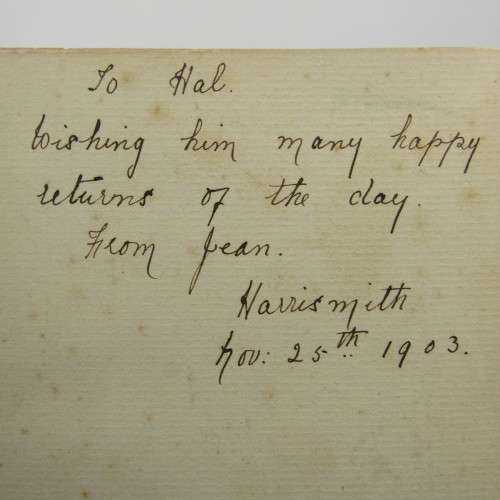 To Hal.
Wishing him many happy
returns of the day.
From Jean.
Harrismith
Nov: 25th. 1903.